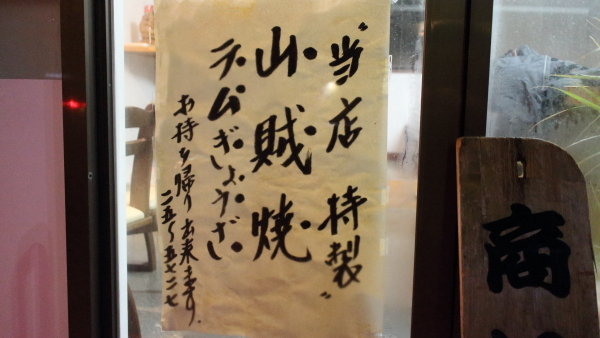 "当店特製"
山賊焼
ラムぎしょうざい
お持ち帰り出来ます。
二五〜五七二七
商